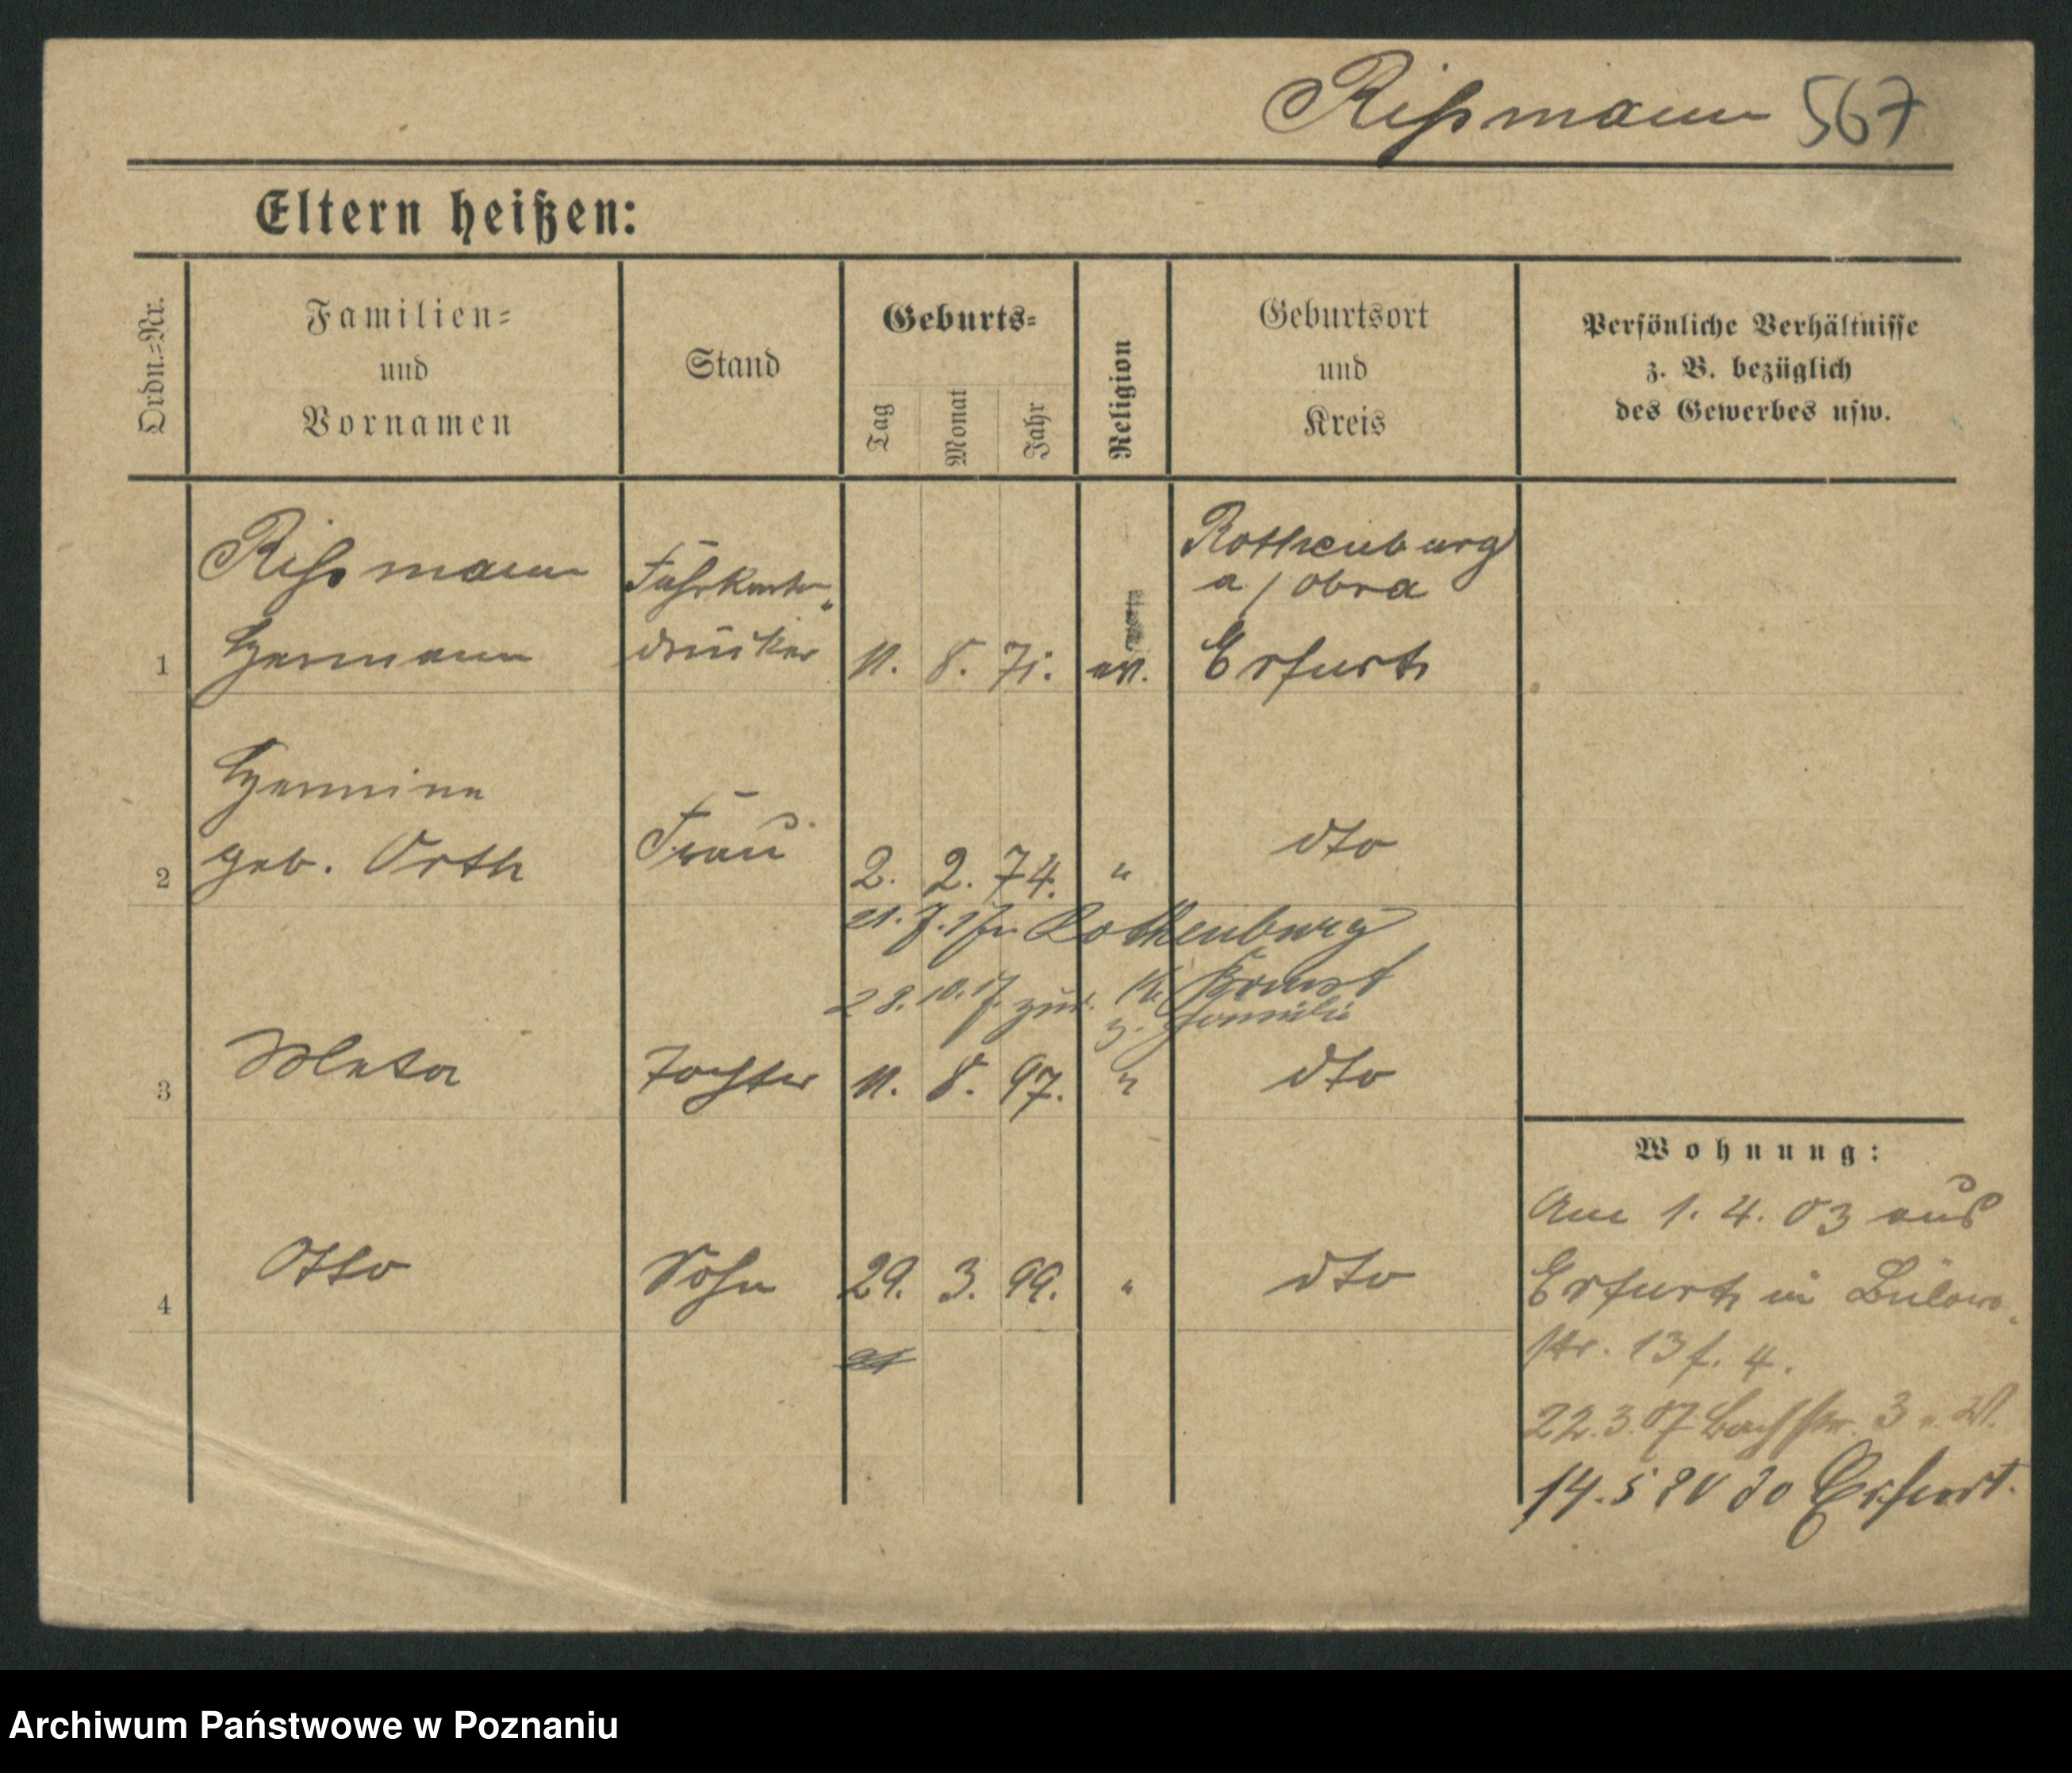 Rißmann 567
Eltern heißen:
Ordn.=Nr.
Familien=
und
Vornamen
Stand
Geburts=
Tag
Monat
Jahr
Religion
Geburtsort
und
Kreis
Persönliche Verhältnisse
z. B. bezüglich
des Gewerbes usw.
Rißmann
Hermann
Fahrkarten-
drucker
11. 8. 71. ev.
Rothenburg
a/Obra
Erfurt
1
Hermine
geb. Orth
Frau
2. 2. 74. "
dto
2
21. 7. 17 n Rothenburg
28. 10. 17. zur. Kr. Bomst
z. Familie
3
Meta
Tochter
11. 8. 97. "
dto
4
Otto
Sohn
29. 3. 99. "
dto
Wohnung:
Am 1. 4. 03 aus
Erfurt in Bülow-
str. 13 f. 4.
22.3.07 Bachstr. 3 W.
14. 5 20 Erfurt.
Archiwum Państwowe w Poznaniu